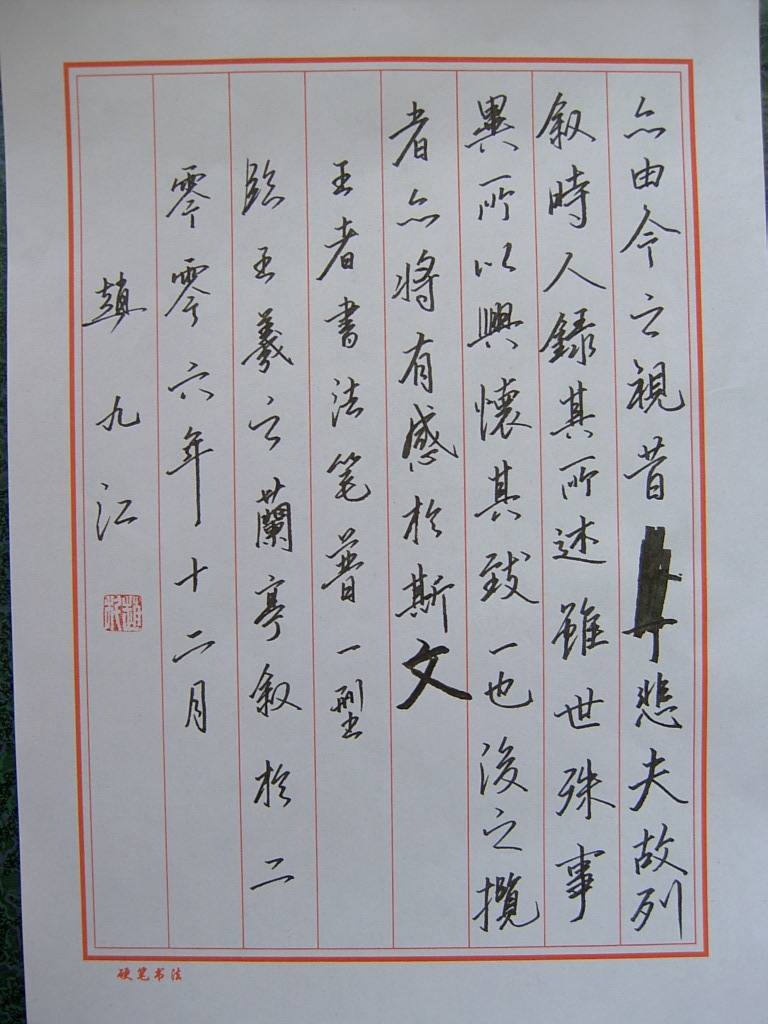 亦由今之視昔悲夫故列
叙時人録其所述雖世殊事
異所以興懷其致一也後之攬
者亦将有感於斯文
王者書法笔普一型
臨王羲之蘭亭叙於二
零零六年十二月
趙九江
硬笔书法